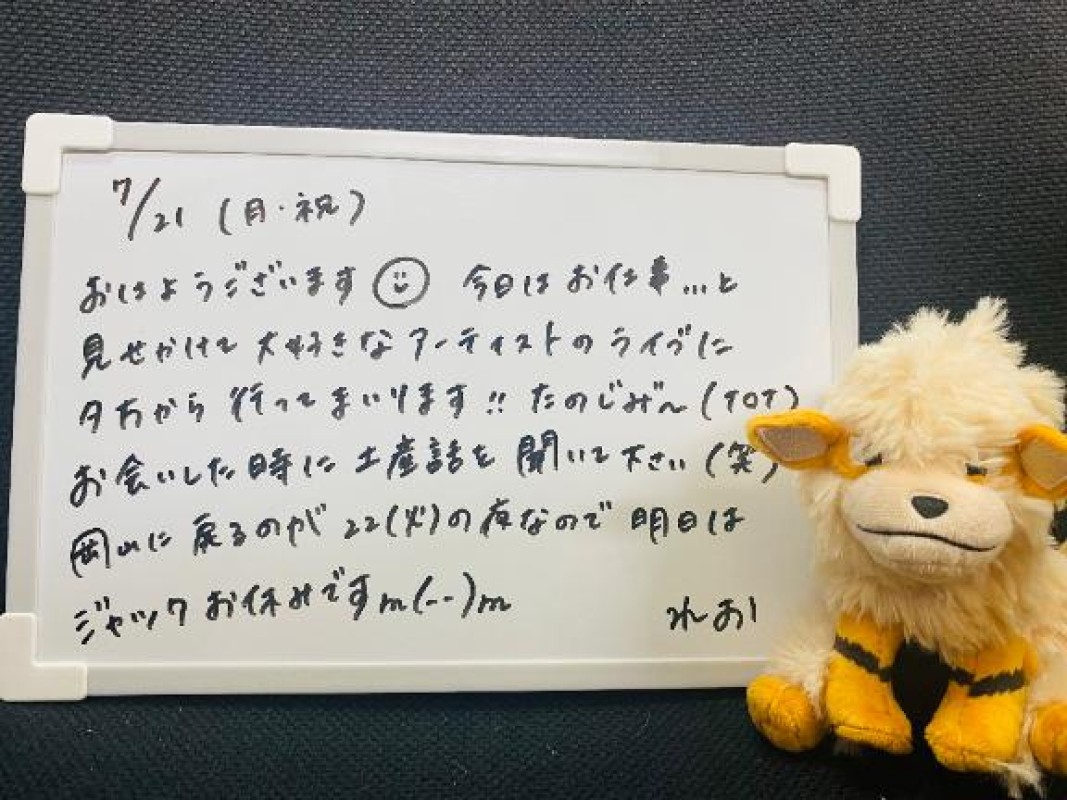 7/21 (月・祝)
おはようございます 今日はお仕事...と
見せかけて大好きなアーティストのライブに
夕方から行ってまいります!! たのじみ〜(TOT)
お会いした時に土産話を聞いて下さい(笑)
岡山に戻るのが22(火)の夜なので明日は
ジャックお休みですm(--)m れお